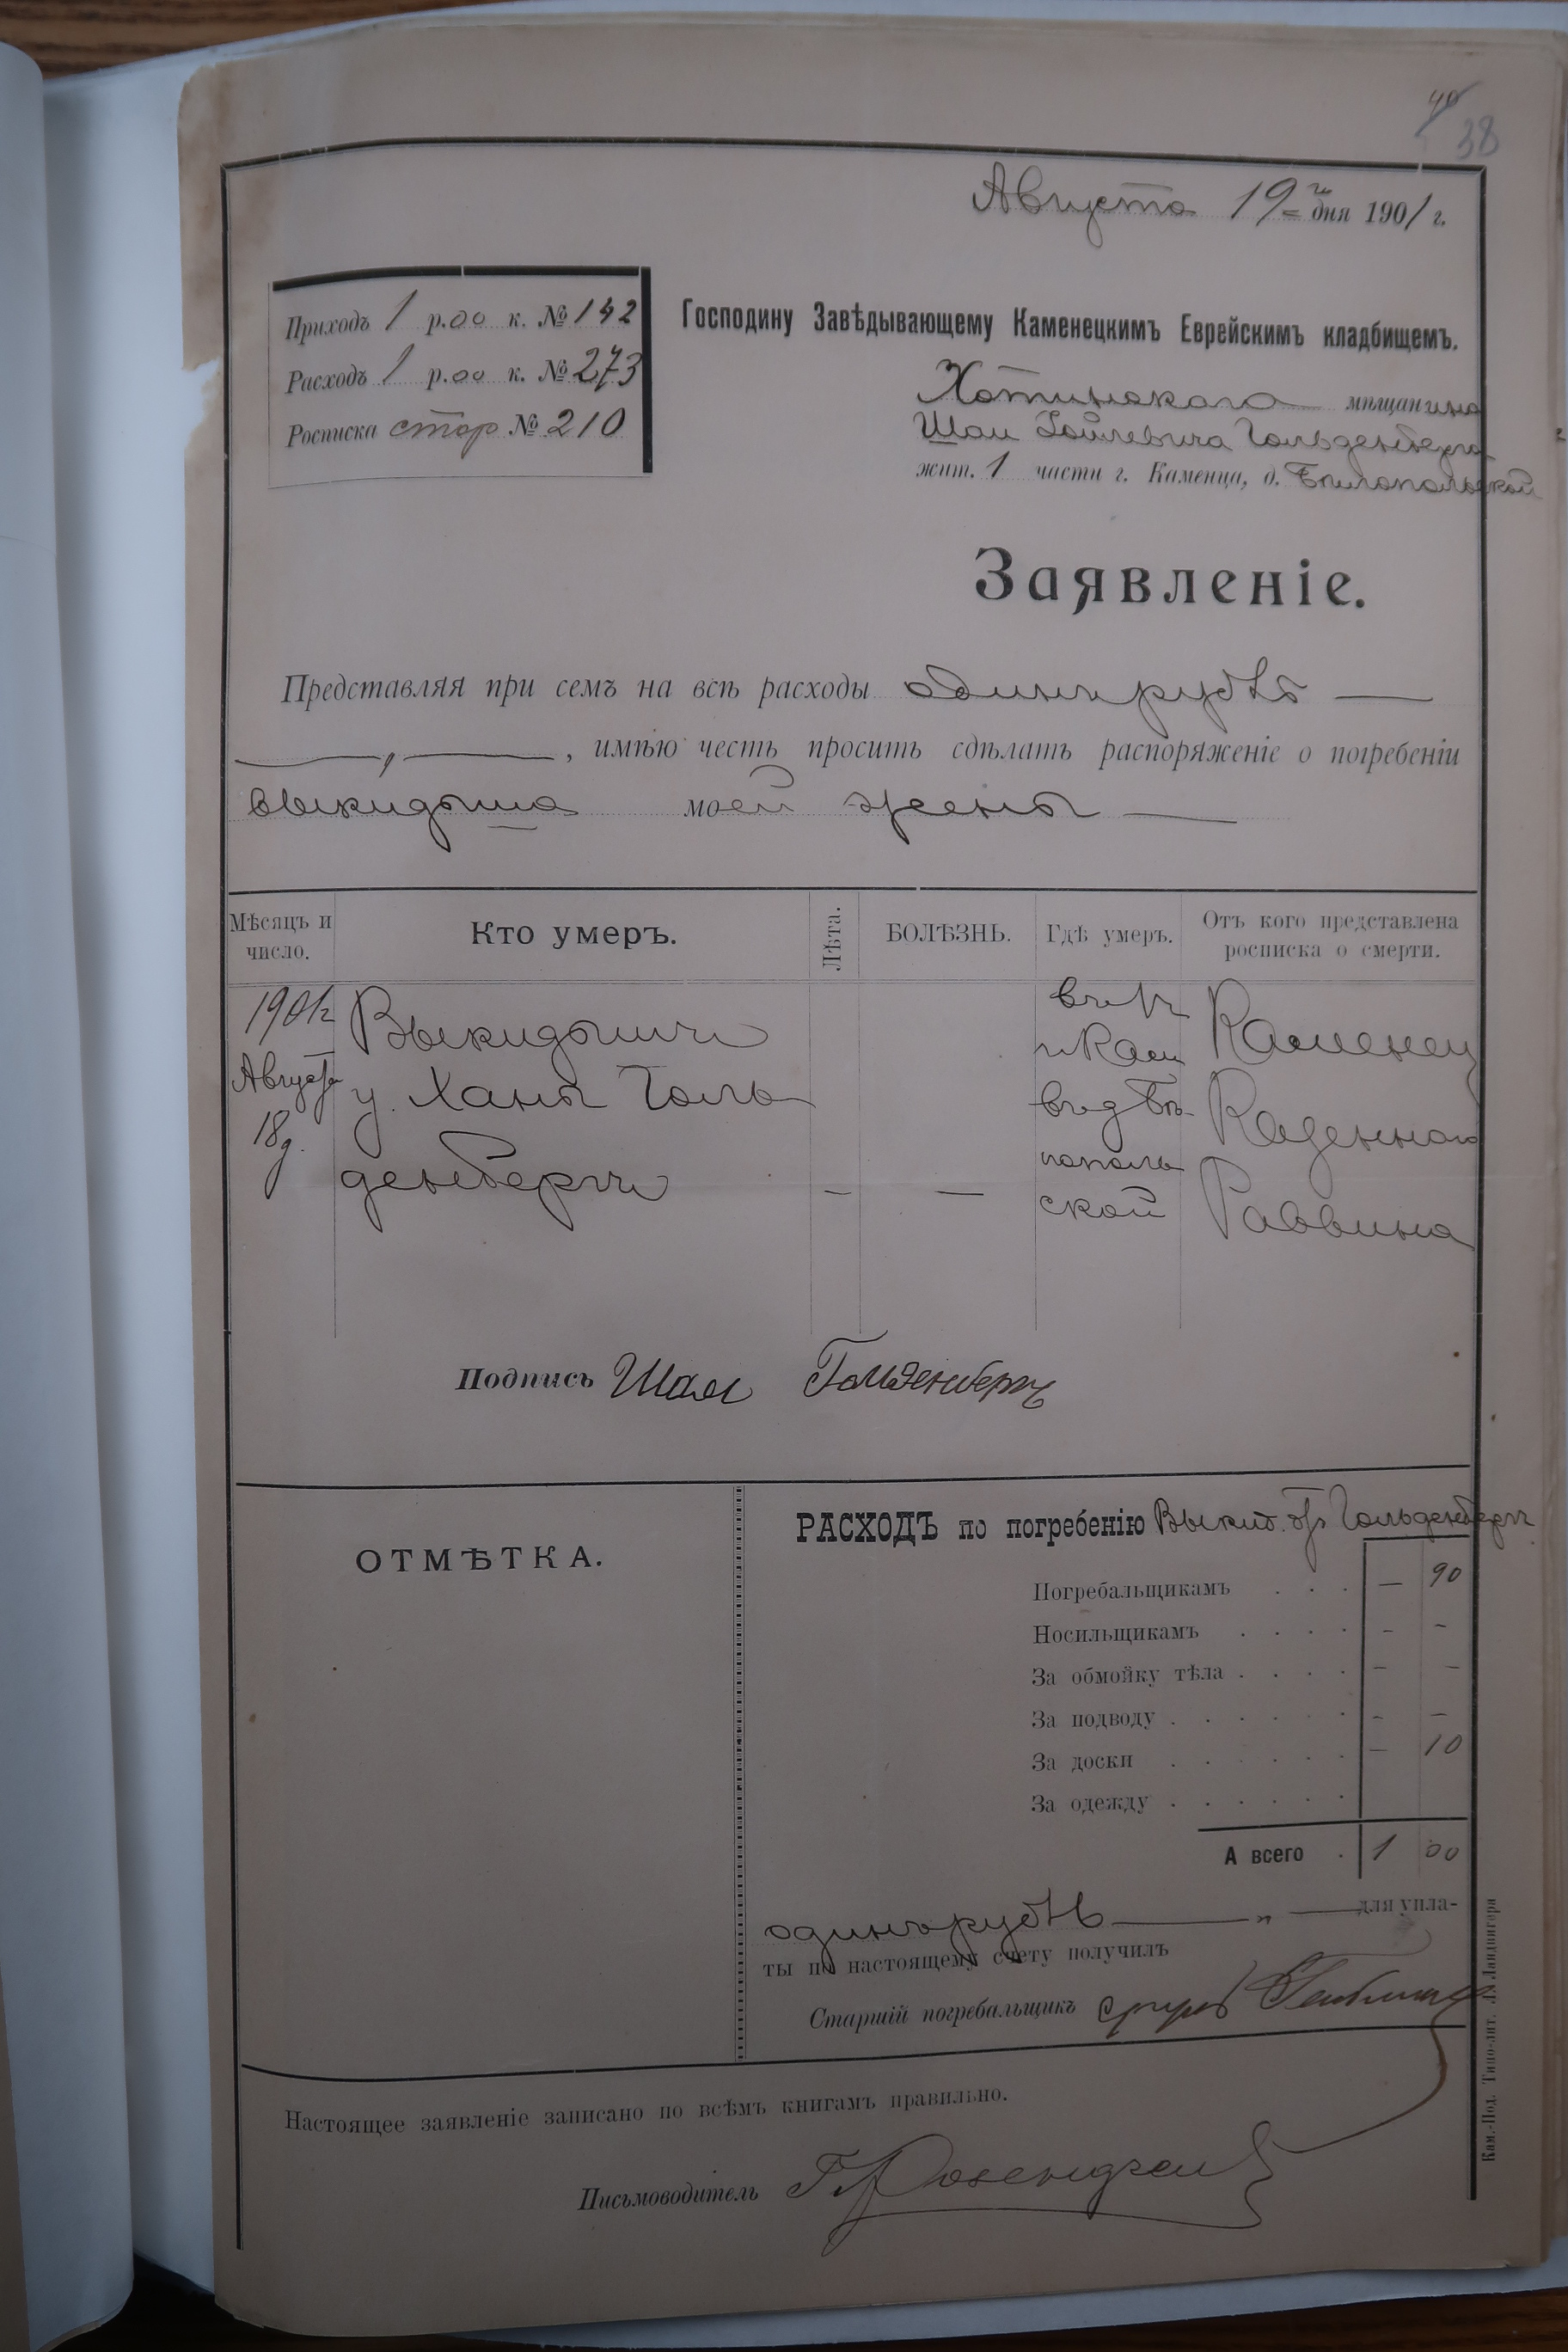 40 38
Августа 19го дня 1901 г.
Приходъ 1 р. 00 к. № 142
Расходъ 1 р. 00 к. № 273
Росписка стар № 210
Господину Завѣдывающему Каменецкимъ Еврейскимъ кладбищемъ.
Хотинскаго мѣщанина
Шаи Гольденберга
жит. 1 части г. Каменца, д. Бѣлопольской
Заявленіе.
Представляя при семъ на всѣ расходы одинъ рубль —
— , — , имѣю честь просить сдѣлать распоряженіе о погребеніи
выкидыша моей жены —
Мѣсяцъ и число.
Кто умеръ.
Лѣта.
БОЛѢЗНЬ.
Гдѣ умеръ.
Отъ кого представлена росписка о смерти.
1901 г
Августа
18 д.
Выкидышъ
у Ханы Голь
денбергъ
—
—
г Кам
въ д Бѣ-
лополь
ской
Каменец
Казеннаго
Раввина
Подпись Шая Гольденбергъ
ОТМѢТКА.
РАСХОДЪ по погребенію Выкид. отъ Гольденбергъ
Погребальщикамъ . . . — 90
Носильщикамъ . . . . - -
За обмойку тѣла . . . . - -
За подводу . . . . . . - -
За доски . . . . . . - 10
За одежду . . . . . .
А всего . 1 00
одинъ рубль — „ — для упла-
ты по настоящему счету получилъ
Старшій погребальщикъ
Настоящее заявленіе записано по всѣмъ книгамъ правильно.
Письмоводитель
Кам.-Под. Типо-лит. Л. Ландвигера